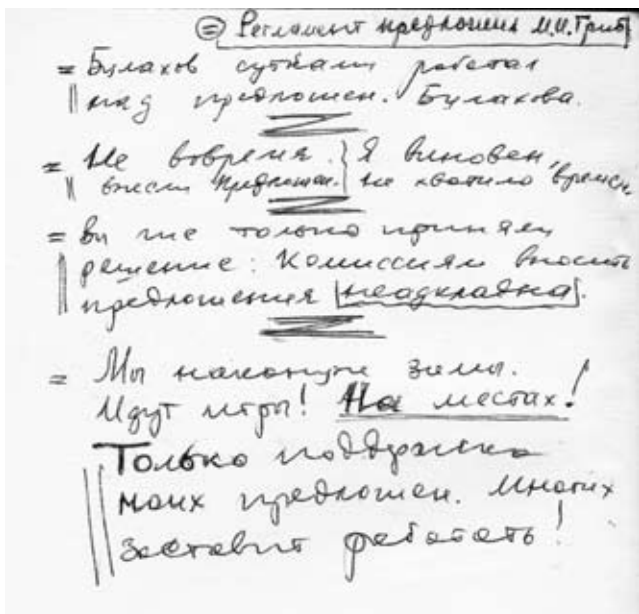 = Регламент предложения М.И. Гриб
= Булахов сутками работал
над предложен. Булахова.
= Не вовремя. } Я виновен,
внесли предложен. } не хватило времени
= Вы же только приняли
решение: Комиссиям вносить
предложения неодкладна.
= Мы накануне зимы.
Идут игры! На местах!
Только поддержка
моих предложен. Многих
заставит работать!